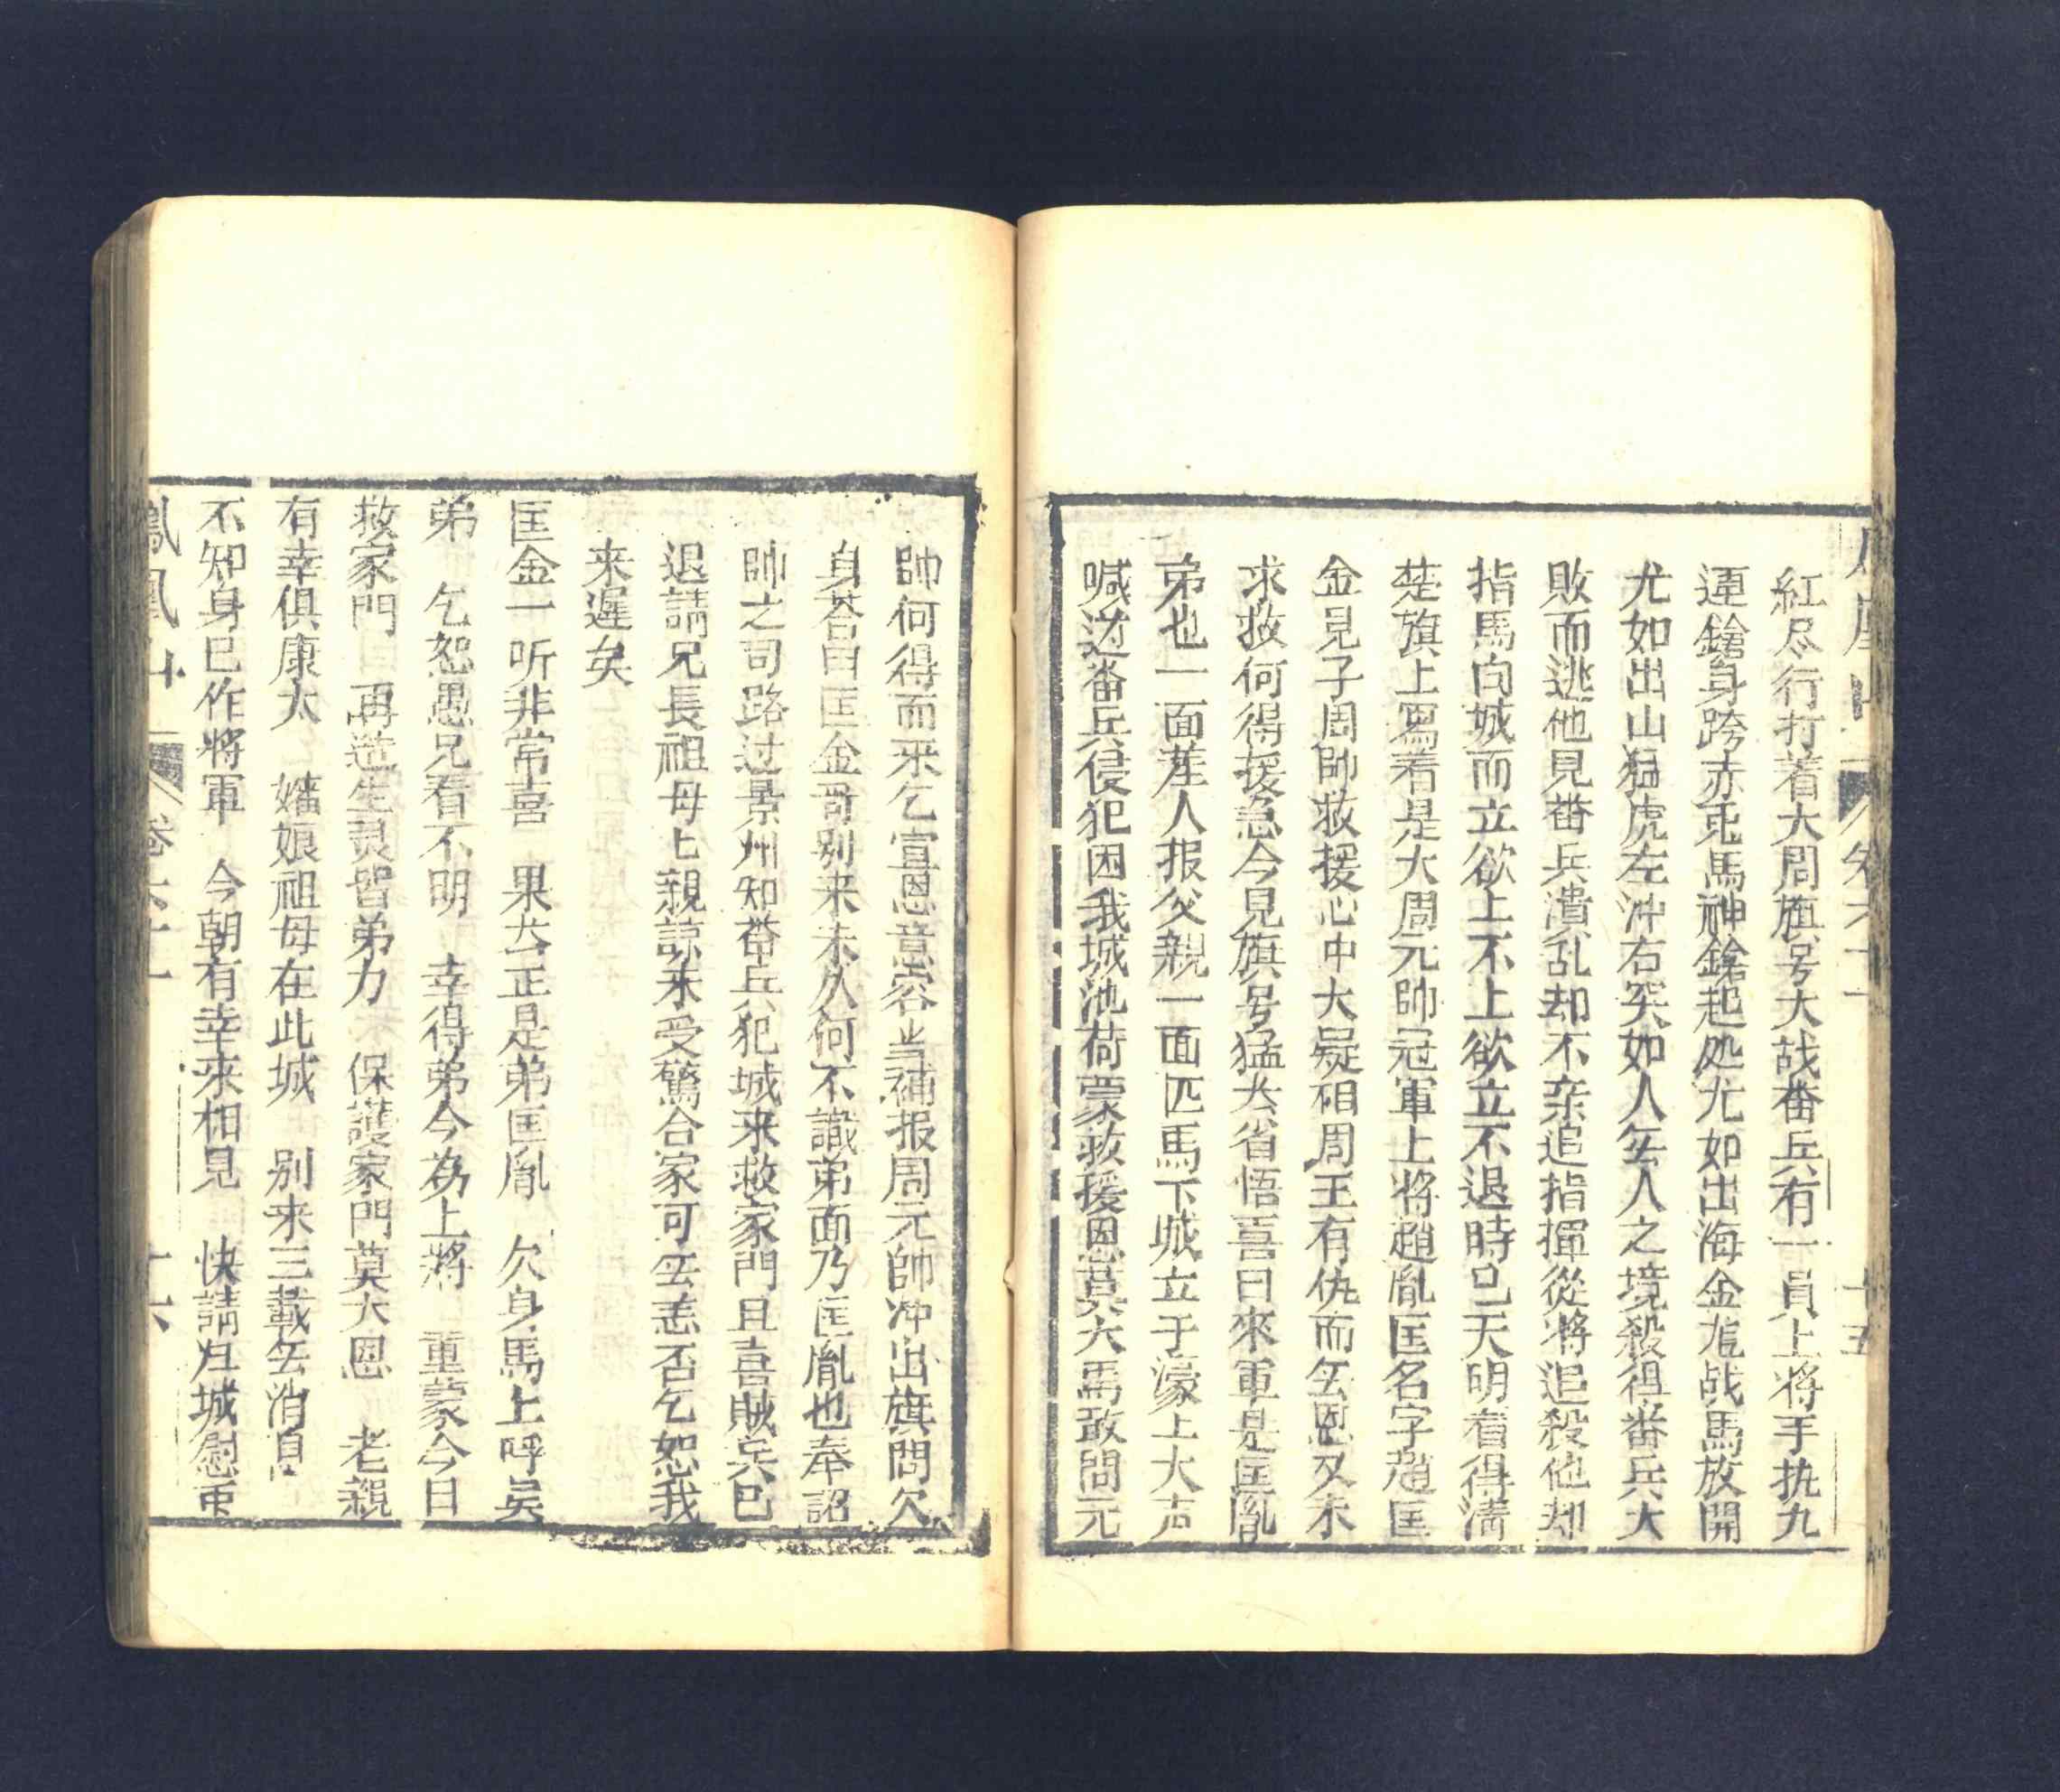 卷六十一 十五
紅尽行打着大周旗号大战番兵有一員上将手执九
運鎗身跨赤兎馬神鎗起処尤如出海金龙战馬放開
尤如出山猛虎左冲右突如人无人之境殺得番兵大
敗而逃他見番兵潰乱却不亲追指揮從将追殺他却
指馬向城而立欲上不上欲立不退時已天明看得清
楚旗上寫着是大周元帥冠軍上将趙胤匡名字趙匡
金見子周帥救援心中大疑相周王有仇而无恩又未
求救何得援急今見旗号猛然省悟喜曰來軍是匡胤
弟也一面差人报父親一面匹馬下城立于濠上大声
喊道番兵侵犯困我城池荷蒙救援恩莫大焉敢問元
帥何得而来乞宣恩意容当補报周元帥冲出旗問欠
身荅曰匡金哥别来未久何不識弟面乃匡胤也奉詔
帥之司路过景州知番兵犯城来救家門且喜賊兵已
退請兄長祖母上親諒来受驚合家可无恙否乞恕我
来遲矣
匡金一听非常喜 果然正是弟匡胤 欠身馬上呼吴
弟 乞恕愚兄看不明 幸得弟今為上將 重蒙今日
救家門 再造生灵皆弟力 保護家門莫大恩 老親
有幸俱康太 嬸娘祖母在此城 别来三載无消息
不知身已作将軍 今朝有幸来相見 快請归城慰重
鳳凰山 卷六十一 十六